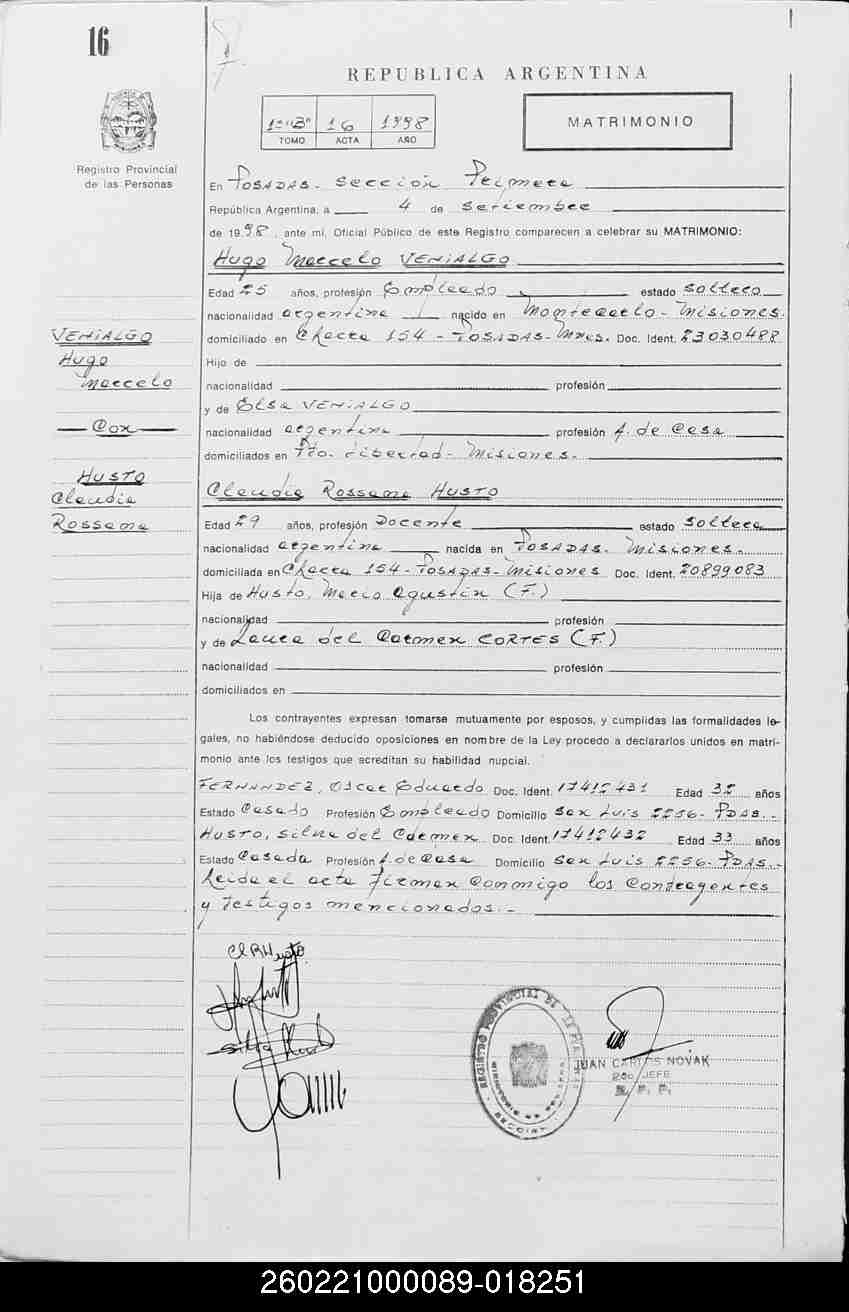 16
REPUBLICA ARGENTINA
1º"B" 16 1998
TOMO ACTA AÑO
MATRIMONIO
Registro Provincial
de las Personas
En POSADAS - Sección Primera
República Argentina, a 4 de Setiembre
de 1998, ante mí, Oficial Público de este Registro comparecen a celebrar su MATRIMONIO:
Hugo Marcelo VENIALGO
Edad 25 años, profesión Empleado estado soltero
nacionalidad argentina nacido en Montecarlo - Misiones.
domiciliado en Chacra 154 - POSADAS - Mnes. Doc. Ident. 23030488
Hijo de
nacionalidad profesión
y de Elsa VENIALGO
nacionalidad argentina profesión A. de Casa
domiciliados en Pto. Libertad - Misiones.
Claudia Rossana HUSTO
Edad 29 años, profesión Docente estado soltera
nacionalidad argentina nacida en POSADAS - Misiones.
domiciliada en Chacra 154 - POSADAS - Misiones Doc. Ident. 20899083
Hija de Husto, Mario Agustín (F.)
nacionalidad profesión
y de Laura del Carmen CORTES (F.)
nacionalidad profesión
domiciliados en
Los contrayentes expresan tomarse mutuamente por esposos, y cumplidas las formalidades le-
gales, no habiéndose deducido oposiciones en nombre de la Ley procedo a declararlos unidos en matri-
monio ante los testigos que acreditan su habilidad nupcial.
FERNANDEZ, Oscar Eduardo Doc. Ident. 17412431 Edad años
Estado Casado Profesión Empleado Domicilio San Luis 2256 - PDAS. -
HUSTO, Silvia del Carmen Doc. Ident. 17412432 Edad 33 años
Estado Casada Profesión A. de Casa Domicilio San Luis 2256 - PDAS. -
Leída el acta firman conmigo los Contrayentes
y testigos mencionados. -
VENIALGO
Hugo
Marcelo
Con
HUSTO
Claudia
Rossana
ClRHusto
REGISTRO PROVINCIAL DE LAS PERSONAS
JUAN CARLOS NOVAK
2do JEFE
R. P. P.
260221000089-018251